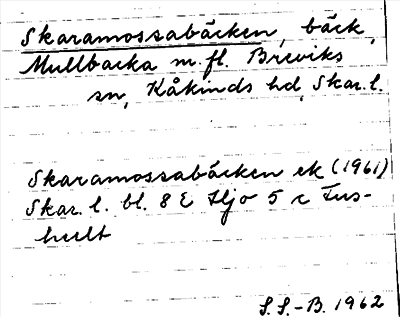 Skaramossabäcken, bäck,
Mullbacka m. fl. Breviks
sn, Kåkinds hd, Skar. l.
Skaramossabäcken ek (1961)
Skar. l. bl. 8 E Hjo 5 c Fus-
hult
S. S.-B. 1962